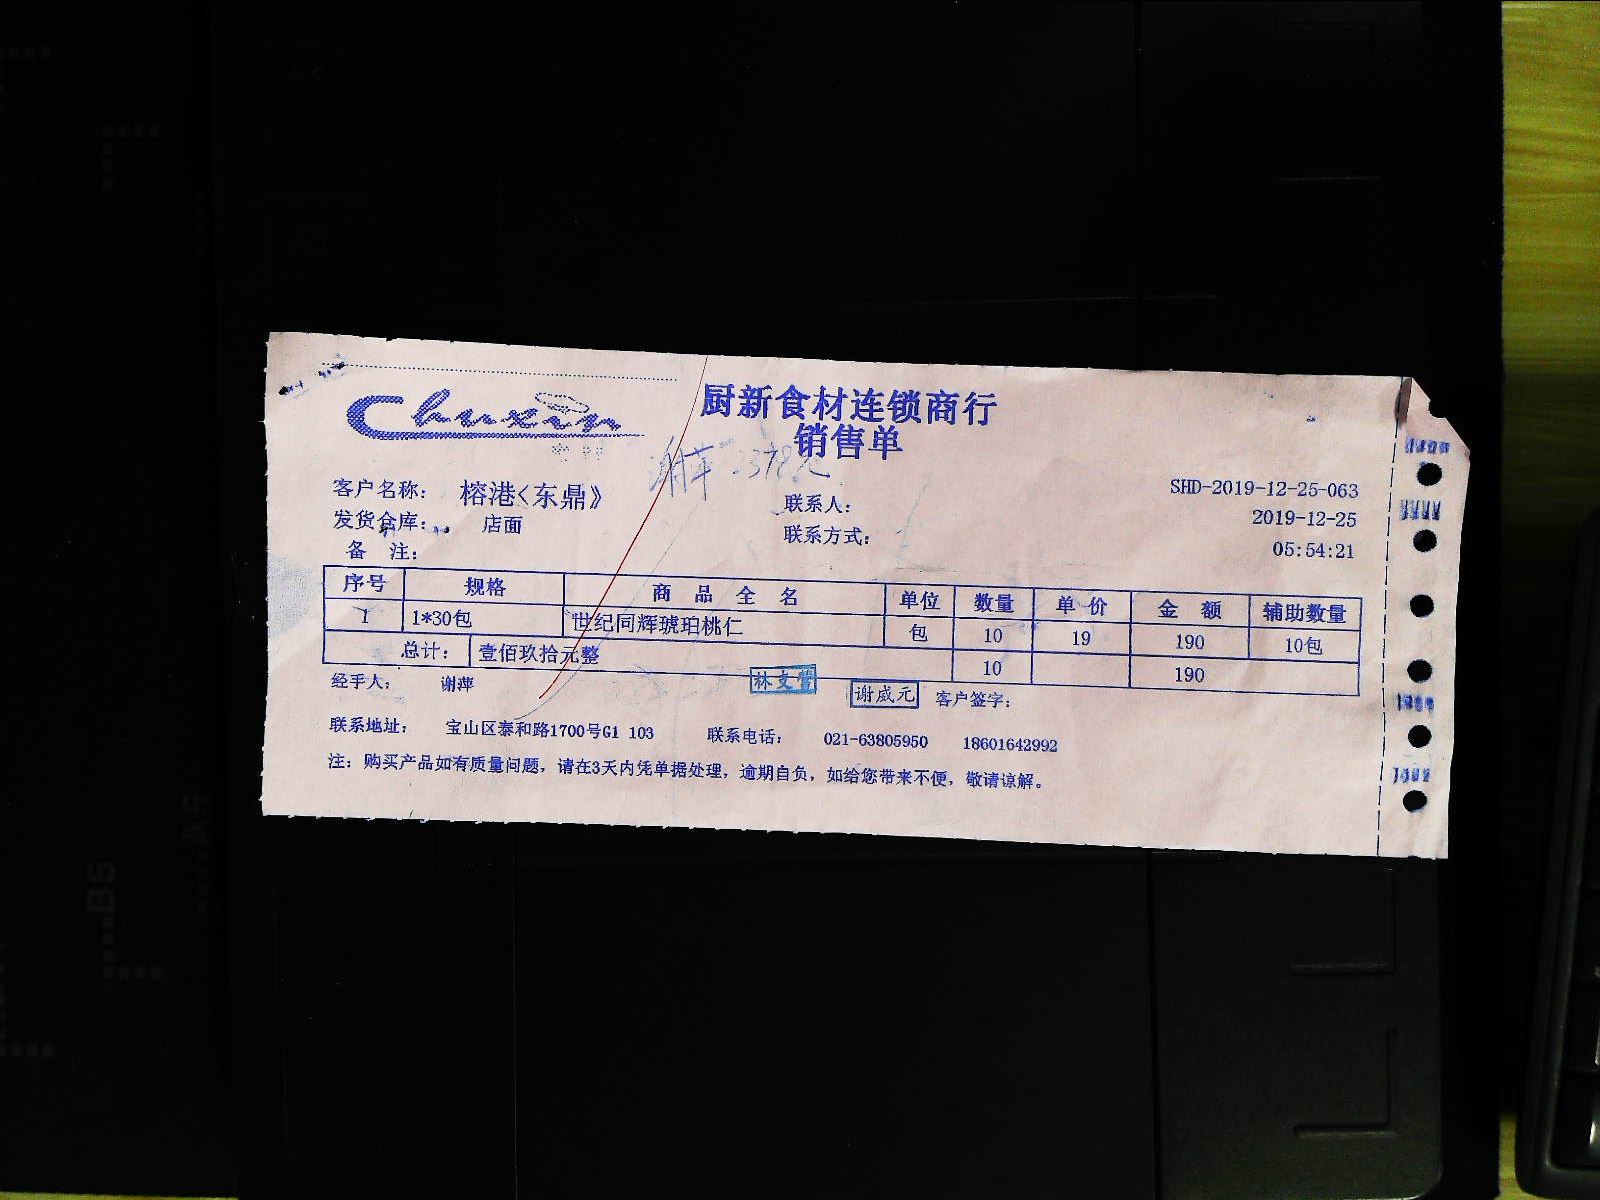 Chuxin
厨新食材连锁商行
销售单
谢萍
客户名称： 榕港<东鼎》 联系人： SHD-2019-12-25-063
发货仓库： 店面 联系方式： 2019-12-25
备 注： 05:54:21
序号 规格 商品全名 单位 数量 单价 金额 辅助数量
1 1*30包 世纪同辉琥珀桃仁 包 10 19 190 10包
总计： 壹佰玖拾元整 10 190
经手人： 谢萍 谢威元 客户签字：
联系地址： 宝山区泰和路1700号G1 103 联系电话： 021-63805950 18601642992
注：购买产品如有质量问题，请在3天内凭单据处理，逾期自负，如给您带来不便，敬请谅解。
B5
A5